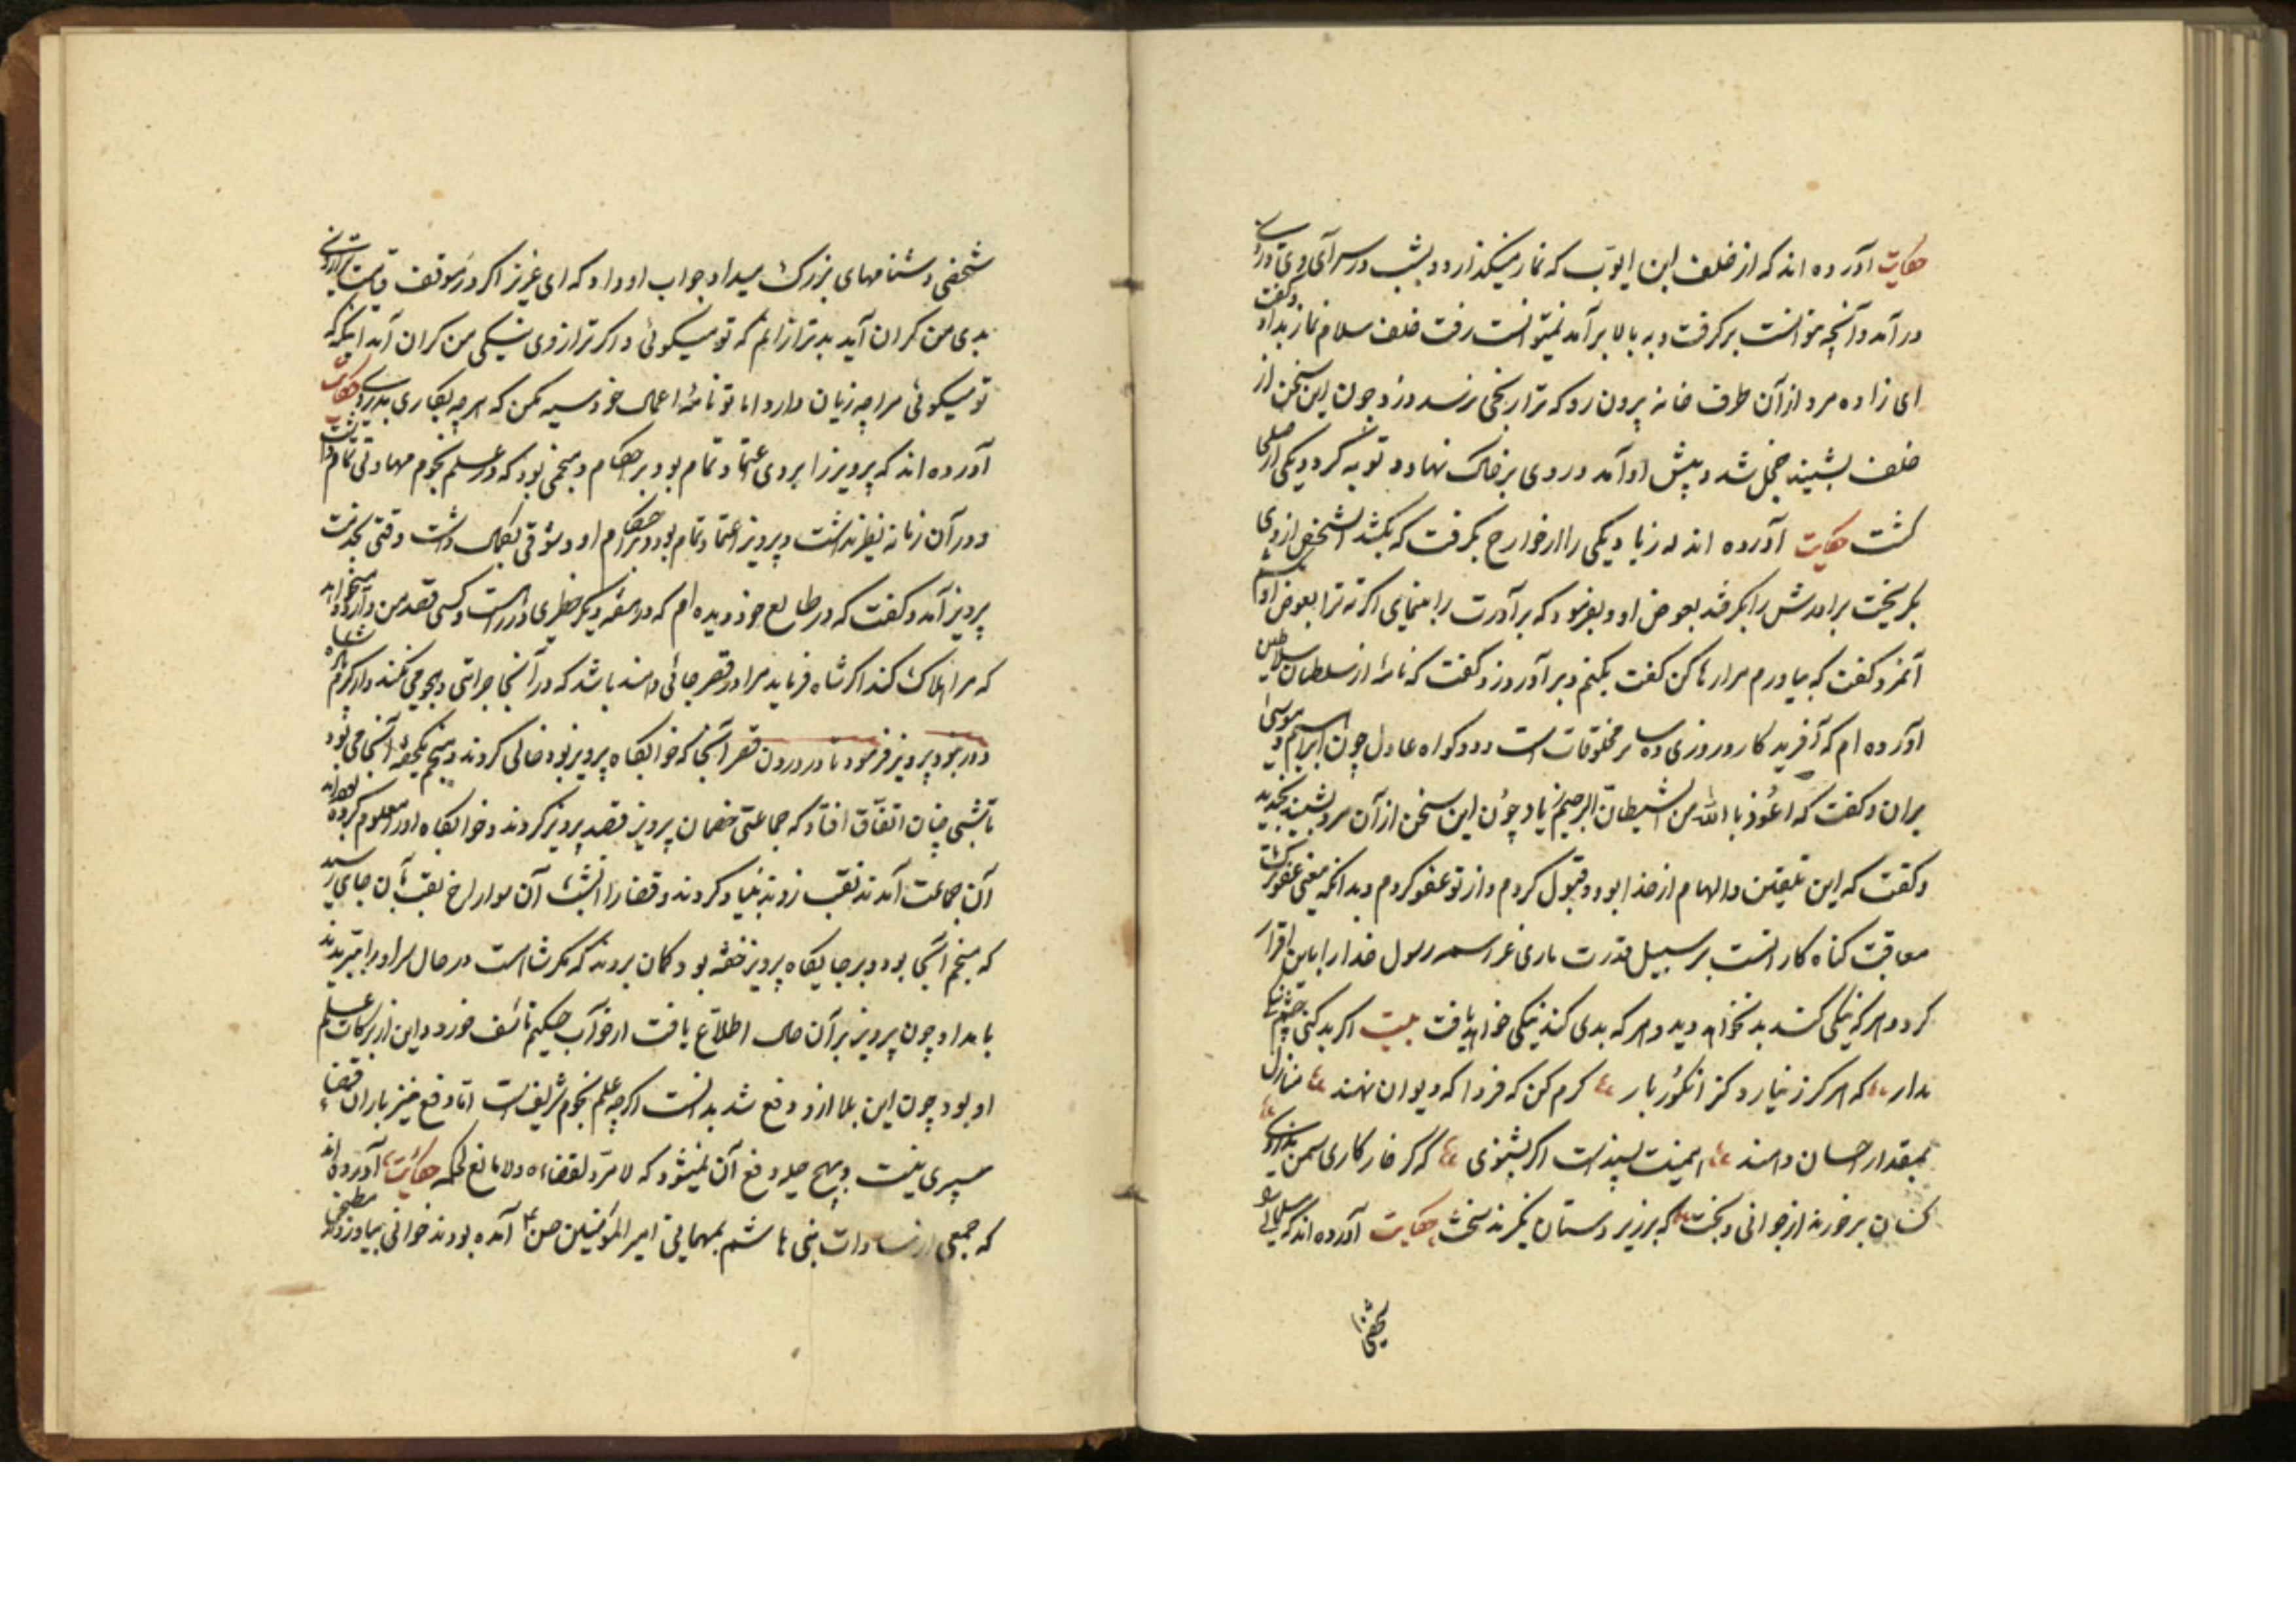 حکایت آورده اند که از خلف ابن ایوب که نماز میگذارد و دیشب در سرآی وی دزدی
درآمد و آنچه میتوانست برگرفت و به بالا برآمد نمیتوانست رفت خلف سلام نماز بداد و گفت
ای زاده مرد از آن طرف خانه بیرون رو که ترا رنجی نرسد دزد چون این سخن از
خلف بشنید خجل شد و پیش او آمد و روی بر خاک نهاد و توبه کرد و یکی از صلحا
گشت حکایت آورده اند که زیاد یکی را از خوارج بگرفت که بکشد آنشخص از وی
بگریخت برادرش را بگرفتند بعوض او و بفرمود که برادرت را بنمایی اگر نه ترا بعوض او
آنمرد گفت که بیاورم مرا رها کن گفت بکنم و برآور و زود گفت که نامه از سلطان سلاطین
آورده ام که آفریدکار و روزی ده سایر مخلوقات است و دو کواه عادل چون ابراهیم و موسی
بران و گفت که اعوذ بالله من الشیطان الرجیم زیاد چون این سخن از آن مرد بشنید بخندید
و گفت که این تلیقین و الهام از خدا بود و قبول کردم و از تو عفو کردم و بدانکه معنی عفو ترک
معاقبت کناه کار است بر سبیل قدرت باری عز اسمه رسول خدا را باین اقرار
کرد و هر که نیکی کند بد نخواهد دید و هر که بدی کند نیکی نخواهد یافت بیت اگر بد کنی چشم نیکی
مدار که هرگز نیارد گز انگور بار کرم کن که فردا که دیوان نهند منازل
بمقدار احسان دهند همینت پسندست اگر بشنوی که گر خار کاری سمن ندروی
کسان برخورند از جوانی و بخت که بر زیر دستان نگیرند سخت حکایت آورده اند که سلمان
شخصی
شخصی دشنامهای بزرک میداد جواب او داد که ای عزیز اگر در موقف قیامت ترازوی
بدی من کران آید بدتر از آنم که تو میگوئی و اگر ترازوی نیکی من کران آید اینکه
تو میگوئی مرا چه زیان دارد اما تو نامه اعمال خود سیه مکن که هر چه بکاری بدروی حکایت
آورده اند که پرویز را بر وی اعتماد تمام بود بر احکام و منجمی بود که در علم نجوم مهارتی تمام داشت
و در آن زمانه نظیر نداشت و پرویز اعتماد تمام بود و بر احکام او وثوقی بکمال داشت وقتی بخدمت
پرویز آمد و گفت که در طالع خود دیده ام که در این هفته دیگر خطری در راه است و کسی قصد من دارد و میخواهد
که مرا هلاک کند اگر شاه فرماید مرا در قصر جائی دهند باشد که در آنجا جراتی و هجومی نکند و از کرم شاه
دور نبود پرویز فرمود تا در درون قصر آنجا که خوابگاه پرویز بود خالی کردند و منجم یکهفته آنجا می بود
تا شبی چنان اتفاق افتاد که جماعتی خصمان پرویز قصد پرویز کردند و خوابگاه او را معلوم کرده بودند
آن جماعت آمدند نقب زدند بنیاد کردند و قضا را آنشب آن سوراخ نقب بآن جای رسید
که منجم آنجا بود و بر جایگاه پرویز خفته بود و کمان بردند که مگر شاه است در حال سر او را بتبریدند
بامداد چون پرویز بر آن حال اطلاع یافت از خواب حکیم تاسف خورد و این از برکات علم
او بود چون این بلا ازو دفع شد بدانست اگر چه علم نجوم شریف است اما دفع تیر باران قضاء
سپری نیست و بهیچ حیله دفع آن نمیشود که لا مرد لقضاءه ولا مانع لحکمه حکایت آورده اند
که جمعی از سادات بنی هاشم بمهمانی امیر المومنین حسن آمده بودند خوانی بیاوردند مطبخی